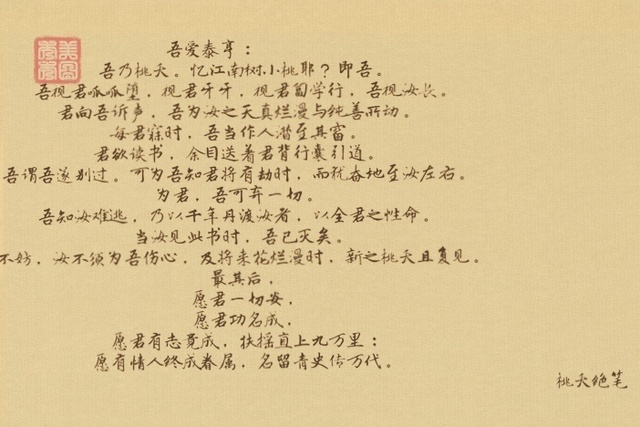 吾爱泰亨：
吾乃桃夭。忆江南树小桃耶？即吾。
吾视君呱呱堕，视君牙牙，视君匍学行，吾视汝长。
君向吾诉声，吾为汝之天真烂漫与纯善所动。
每君寐时，吾当作人潜至其窗。
君欲读书，余目送着君背行囊引道。
吾谓吾遂别过。可为吾知君将有劫时，而犹奋地至汝左右。
为君，吾可弃一切。
吾知汝难逃，乃以千年丹渡汝者，以全君之性命。
当汝见此书时，吾已灭矣。
不妨，汝不须为吾伤心，及将来花烂漫时，新之桃夭且复见。
最其后，
愿君一切安，
愿君功名成，
愿君有志竟成，扶摇直上九万里：
愿有情人终成眷属，名留青史传万代。
桃夭绝笔